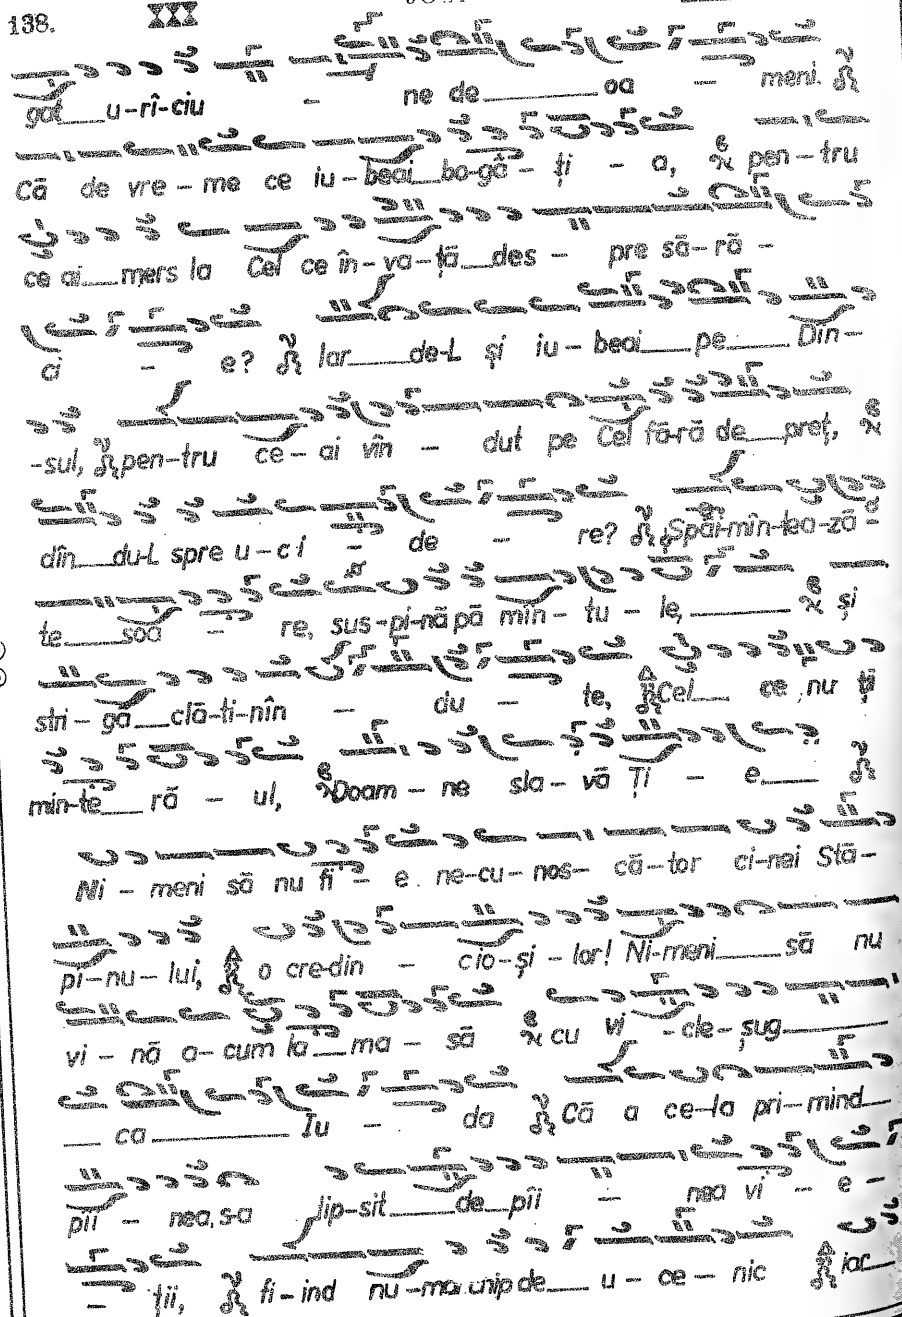 138.
găt__u-rî-ciu - ne de__oa - meni.
Că de vre-me ce iu-beai__bo-gă-ți - a, pen-tru
ce ai__mers la Cel ce în-va-ță__des - pre să-ră -
ci - e? Iar__de-L și iu-beai__pe__Dîn-
-sul, pen-tru ce-ai vîn - dut pe Cel fă-ră de__preț,
dîn__du-L spre u-ci - de - re? Spăi-mîn-tea-ză -
te__soa - re, sus-pi-nă pă mîn-tu - le,__și
stri-gă__clă-ti-nîn - du - te, Cel__ce nu ții
min-te__ră - ul, Doam-ne sla-vă Ți - e__
Ni-meni să nu fi - e ne-cu-nos- că-tor ci-nei Stă-
pî-nu-lui, o cre-din - cio-și-lor! Ni-meni__să nu
vi-nă a-cum la__ma-să cu vi-cle-șug__
__ca__Iu - da Că a ce-la pri-mind__
pîi-nea, s-a lip-sit__de__pîi - nea vi - e -
- ții, fi-ind nu-mai chip de__u-ce-nic iar__